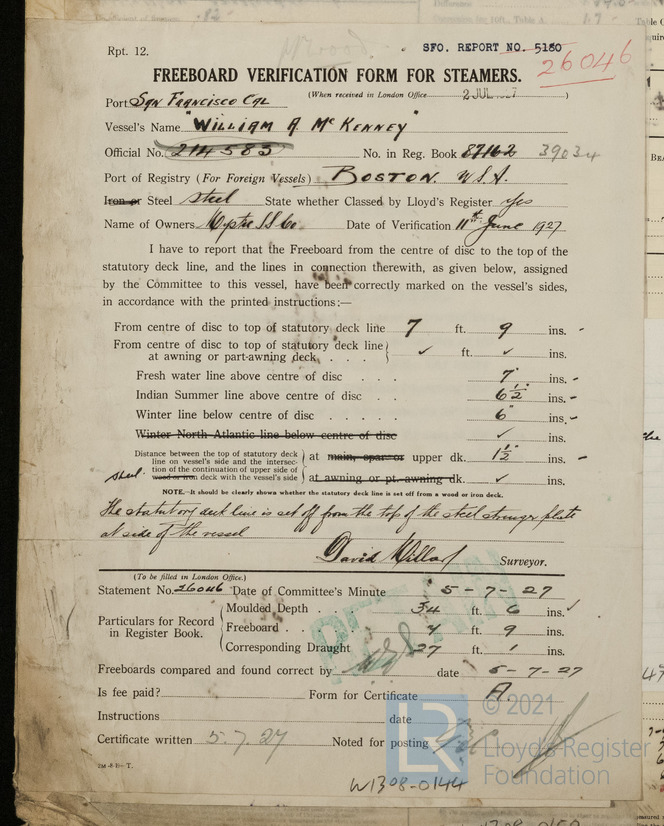 Rpt. 12.
SFO. REPORT NO. 5180
26046
FREEBOARD VERIFICATION FORM FOR STEAMERS.
Port San Francisco Cal (When received in London Office 2 JUL 1927)
Vessel's Name "WILLIAM A. McKENNEY"
Official No. 214583 No. in Reg. Book 87162 39034
Port of Registry (For Foreign Vessels) BOSTON. U.S.A.
Iron or Steel Steel State whether Classed by Lloyd's Register yes
Name of Owners Mystic SS Co. Date of Verification 11th June 1927
I have to report that the Freeboard from the centre of disc to the top of the
statutory deck line, and the lines in connection therewith, as given below, assigned
by the Committee to this vessel, have been correctly marked on the vessel's sides,
in accordance with the printed instructions:—
From centre of disc to top of statutory deck line 7 ft. 9 ins.
From centre of disc to top of statutory deck line
at awning or part-awning deck . . . ✓ ft. ✓ ins.
Fresh water line above centre of disc . . . 7" ins.
Indian Summer line above centre of disc . . 6½" ins.
Winter line below centre of disc . . . . . 6" ins.
Winter North Atlantic line below centre of disc ✓ ins.
Distance between the top of statutory deck
line on vessel's side and the intersec-
tion of the continuation of upper side of
steel wood or iron deck with the vessel's side
at main, spar or upper dk. 1½" ins.
at awning or pt. awning dk. ✓ ins.
NOTE.—It should be clearly shown whether the statutory deck line is set off from a wood or iron deck.
The statutory deck line is set off from the top of the steel stringer plate
at side of the vessel
David Surveyor.
(To be filled in London Office.)
Statement No. 26046 Date of Committee's Minute 5-7-27
Particulars for Record
in Register Book.
Moulded Depth . . 34 ft. 6 ins. ✓
Freeboard . . 7 ft. 9 ins.
Corresponding Draught 27 ft. 1 ins.
Freeboards compared and found correct by date 5-7-27
Is fee paid? Form for Certificate A.
Instructions date
Certificate written 5.7.27 Noted for posting
2M-8-B-T.
W1308-0144
© 2021
LR
Lloyd's Register
Foundation